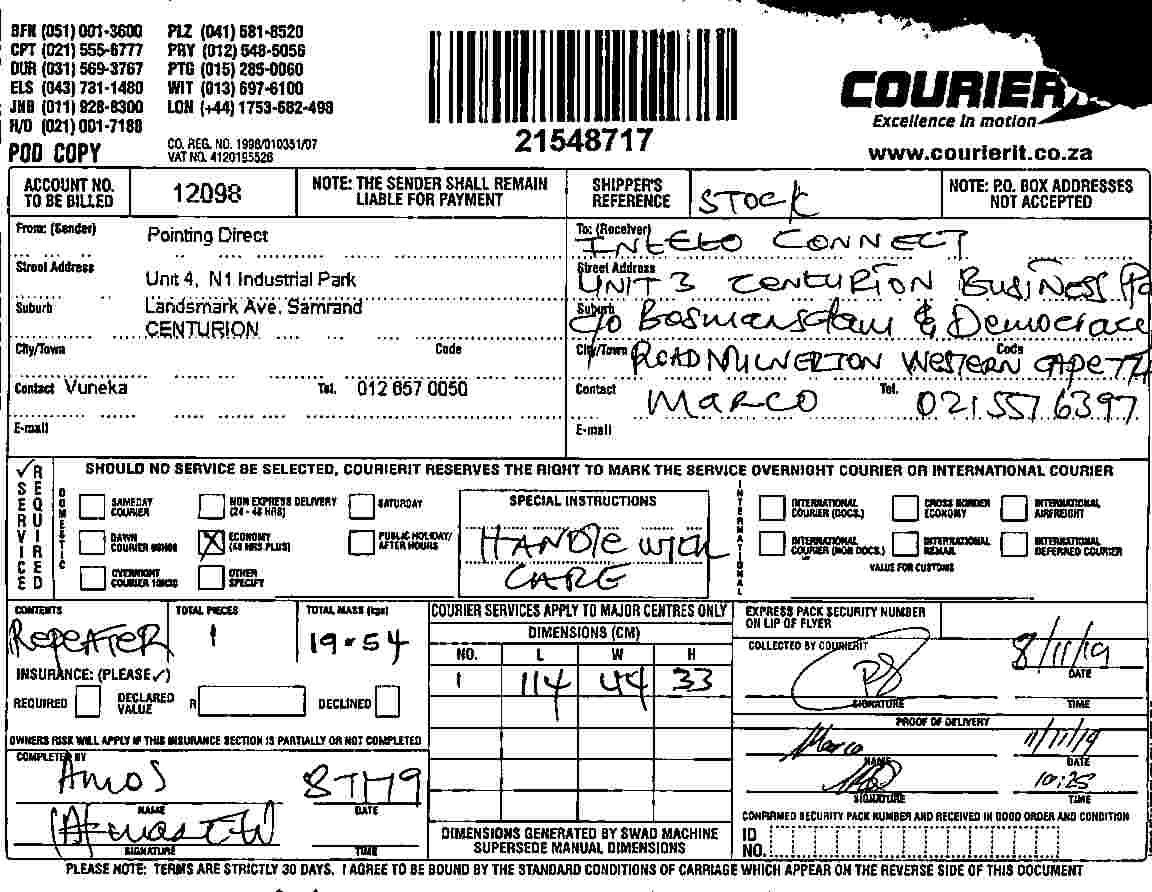 BFN (051) 001-3600 PLZ (041) 581-8520
CPT (021) 555-6777 PRY (012) 548-5056
DUR (031) 569-3767 PTG (015) 285-0060
ELS (043) 731-1480 WIT (013) 697-6100
JNB (011) 928-8300 LON (+44) 1753-682-498
H/O (021) 001-7188
POD COPY
CO. REG. NO. 1998/010351/07
VAT NO. 4120195526
21548717
COURIER
Excellence in motion
www.courierit.co.za
ACCOUNT NO. TO BE BILLED 12098
NOTE: THE SENDER SHALL REMAIN LIABLE FOR PAYMENT
SHIPPER'S REFERENCE STOCK
NOTE: P.O. BOX ADDRESSES NOT ACCEPTED
From: (Sender) Pointing Direct
Street Address Unit 4, N1 Industrial Park
Suburb Landsmark Ave, Samrand
CENTURION
City/Town Code
Contact Vuneka Tel. 012 657 0050
E-mail
To: (Receiver) INTEGO CONNECT
Street Address UNIT 3 CENTURION BUSINESS
Suburb c/o Bosmansdam & Democrace
City/Town ROAD MILNERTON WESTERN CAPE Code
Contact MARCO Tel. 021 557 6397
E-mail
✓ SERVICE REQUIRED
SHOULD NO SERVICE BE SELECTED, COURIERIT RESERVES THE RIGHT TO MARK THE SERVICE OVERNIGHT COURIER OR INTERNATIONAL COURIER
DOMESTIC
SAMEDAY COURIER
NON EXPRESS DELIVERY (24 - 48 HRS)
SATURDAY
DAWN COURIER
X ECONOMY (48 HRS PLUS)
PUBLIC HOLIDAY/ AFTER HOURS
OVERNIGHT COURIER
OTHER SPECIFY
SPECIAL INSTRUCTIONS
HANDLE WITH
CARE
INTERNATIONAL
INTERNATIONAL COURIER (DOCS.)
CROSS BORDER ECONOMY
INTERNATIONAL AIRFREIGHT
INTERNATIONAL COURIER (NON DOCS.)
INTERNATIONAL REMAIL
INTERNATIONAL DEFERRED COURIER
VALUE FOR CUSTOMS
CONTENTS REPEATER
TOTAL PIECES 1
TOTAL MASS (kgs) 19.54
INSURANCE: (PLEASE ✓)
REQUIRED DECLARED VALUE R DECLINED
OWNERS RISK WILL APPLY IF THIS INSURANCE SECTION IS PARTIALLY OR NOT COMPLETED
COMPLETED BY
AMOS
NAME DATE
SIGNATURE TIME
COURIER SERVICES APPLY TO MAJOR CENTRES ONLY
DIMENSIONS (CM)
NO. L W H
1 114 44 33
DIMENSIONS GENERATED BY SWAD MACHINE
SUPERSEDE MANUAL DIMENSIONS
EXPRESS PACK SECURITY NUMBER ON LIP OF FLYER
COLLECTED BY COURIERIT
8/11/19
DATE
SIGNATURE TIME
PROOF OF DELIVERY
Marco 11/11/19
NAME DATE
10:25
SIGNATURE TIME
CONFIRMED SECURITY PACK NUMBER AND RECEIVED IN GOOD ORDER AND CONDITION
ID NO.
PLEASE NOTE: TERMS ARE STRICTLY 30 DAYS. I AGREE TO BE BOUND BY THE STANDARD CONDITIONS OF CARRIAGE WHICH APPEAR ON THE REVERSE SIDE OF THIS DOCUMENT